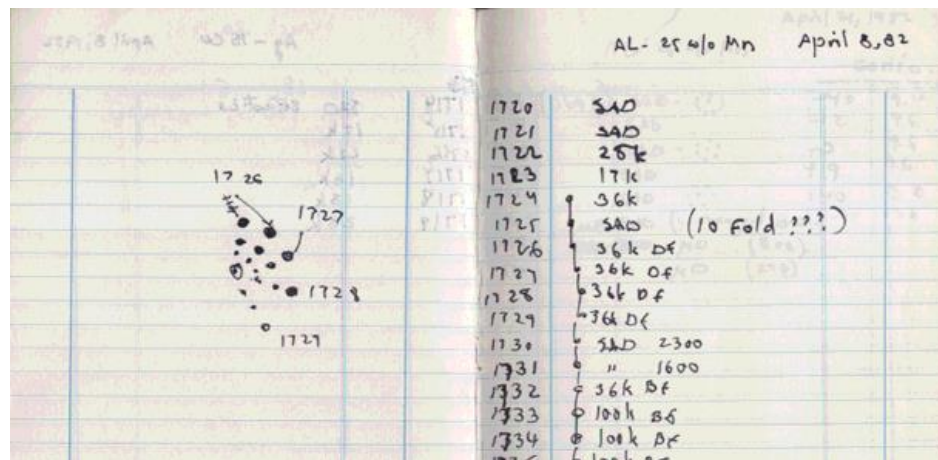 1726
1727
1728
1729
AL- 25 w/o Mn April 8, 82
1720 SAD
1721 SAD
1722 25k
1723 17k
1724 36k
1725 SAD (10 Fold ???)
1726 36k Df
1727 36k Df
1728 36k Df
1729 36k Df
1730 SAD 2300
1731 " 1600
1732 36k Bf
1733 100k Bf
1734 100k Bf